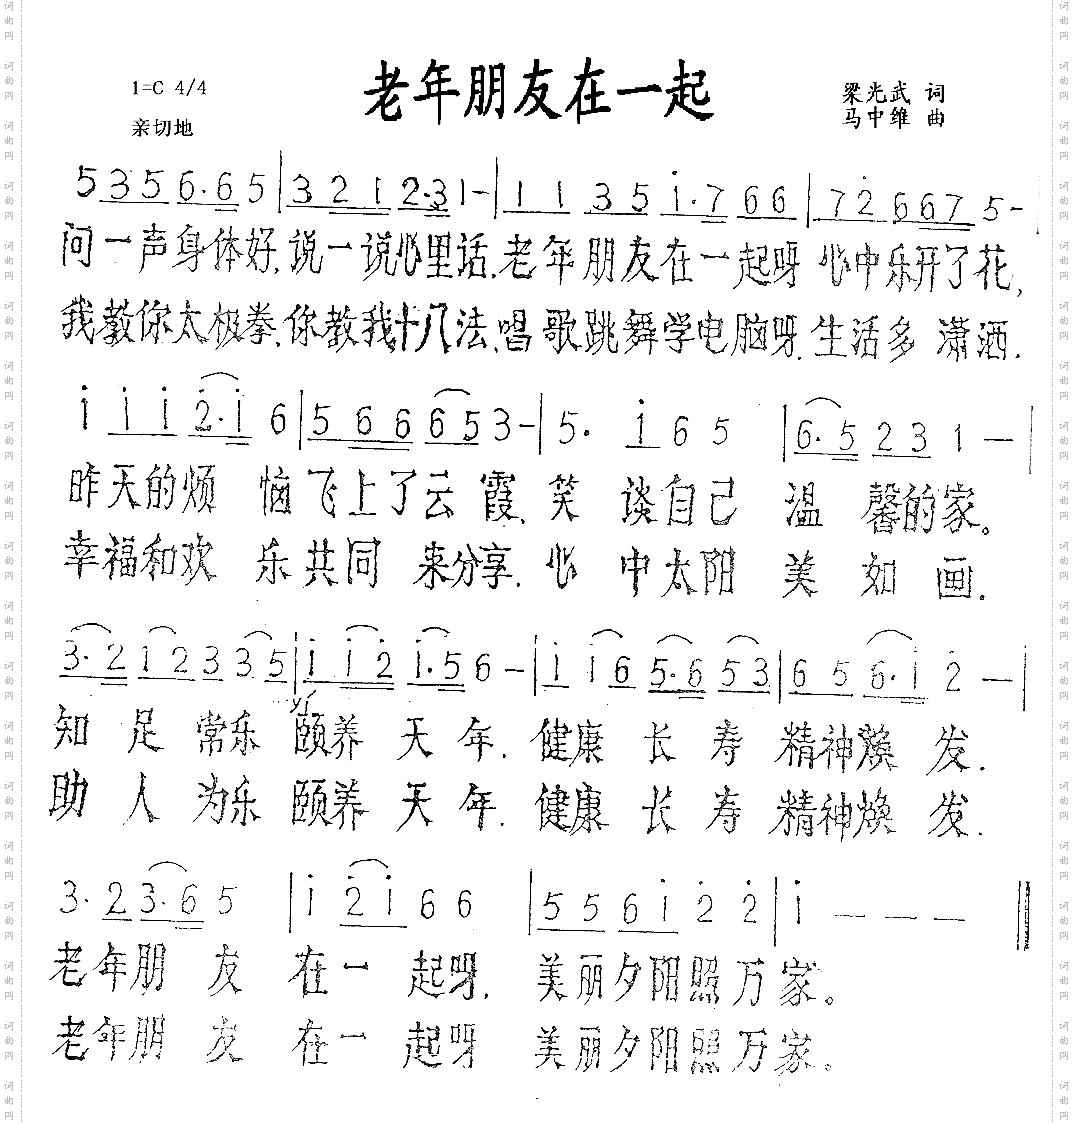 1=C 4/4
老年朋友在一起
梁光武 词
亲切地
马中维 曲
5 3 5 6·6 5 | 3 2 1 2·3 1 - | 1 1 3 5 i·7 6 6 | 7 2 6 6 7 5 -
问一声身体好,说一说心里话,老年朋友在一起呀 心中乐开了花,
我教你太极拳,你教我十八法,唱歌跳舞学电脑呀,生活多 潇洒.
i i i 2·i 6 | 5 6 6 6 5 3 - | 5· i 6 5 | 6·5 2 3 1 —
昨天的烦 恼飞上了云霞,笑 谈自己 温 馨的家。
幸福和欢 乐共同 来分享,心 中太阳 美 如 画.
3·2 1 2 3 3 5 | i i 2 i·5 6 - | i i 6 5·6 5 3 | 6 5 6·i 2 — |
yí
知 足 常乐 颐养 天 年.健康 长 寿 精神焕 发.
助 人 为乐 颐养 天 年.健康 长 寿 精神焕 发.
3·2 3·6 5 | i 2 i 6 6 | 5 5 6 i 2 2 | i — — — ‖
老年朋 友 在一 起呀,美丽夕阳照万家。
老年朋 友 在一 起呀 美丽夕阳照万家。
词曲网